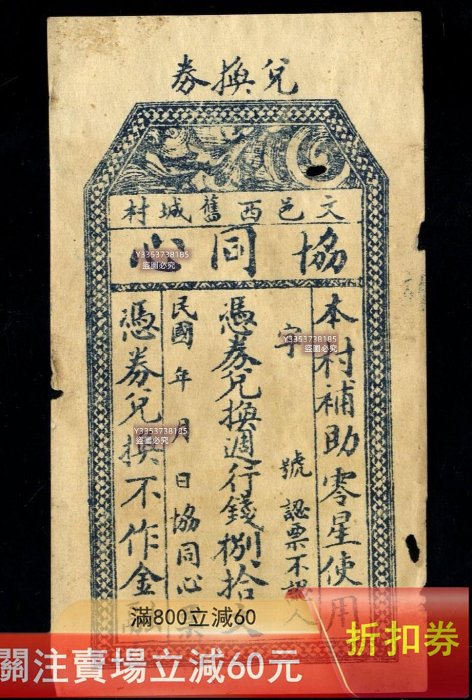 兌換券
文邑西舊城村
協同心
本村補助零星使用
字 號 認票不認人
憑券兌換週行錢捌拾
民國 年 月 日協同心
憑券兌換不作金
Y3353738185
盜圖必究
Y3353738185
盜圖必究
Y3353738185
盜圖必究
Y3353738185
盜圖必究
滿800立減60
關注賣場立減60元
折扣券